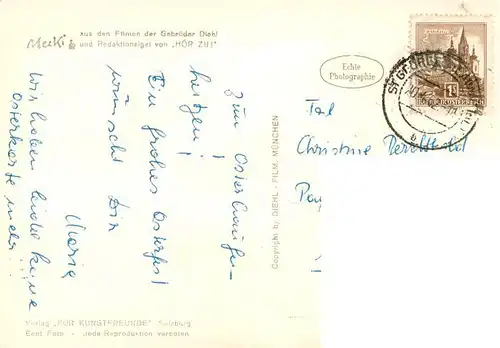 Mecki
aus den Filmen der Gebrüder Diehl
und Redaktionsigel von „HÖR ZU!"
Echte
Photographie
ST. GEORGEN
1S
REPUBLIK ÖSTERREICH
Frl.
Christine
zum
herzen!
Ein frohes Osterfest
wünscht Dir
Maria
Wir haben leider keine
Osterkarte mehr.
Copyright by DIEHL - FILM, MÜNCHEN
Verlag „FÜR KUNSTFREUNDE" Salzburg
Echt Foto - Jede Reproduktion verboten